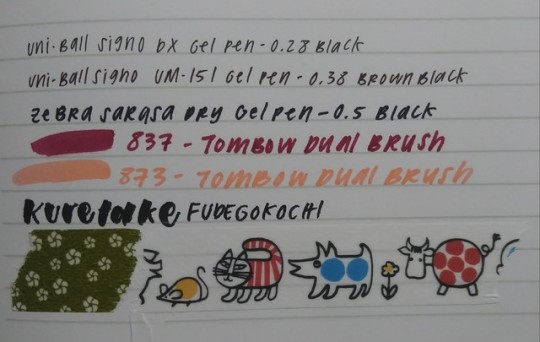 uni-Ball Signo DX Gel Pen - 0.28 Black
uni-Ball Signo UM-151 Gel Pen - 0.38 Brown Black
Zebra Sarasa Dry Gel Pen - 0.5 Black
837 - Tombow Dual Brush
873 - Tombow Dual Brush
Kuretake FUDEGOKOCHI